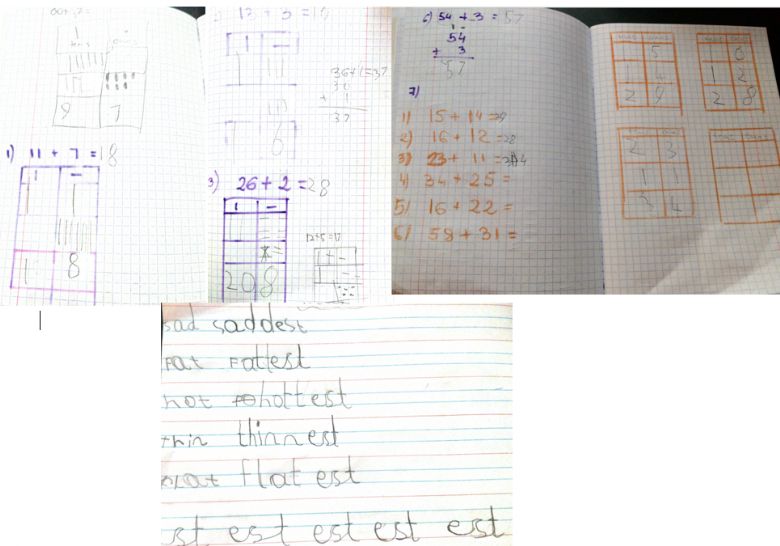 tens
9 7
1) 11 + 7 = 18
1 -
1 8
13 + 3 = 16
1 -
1 6
36+1=37
36
+ 1
37
3) 26 + 2 = 28
1 -
208
12+5=17
1 -
6) 54 + 3 = 57
54
+ 3
57
7)
1) 15 + 14 = 29
2) 16 + 12 = 28
3) 23 + 11 =
4) 34 + 25 =
5) 16 + 22 =
6) 58 + 31 =
1 5
1 4
2 9
1 6
1 2
2 8
2 3
1 1
3 4
sad saddest
fat fattest
hot hottest
thin thinnest
flat flatest
est est est est est